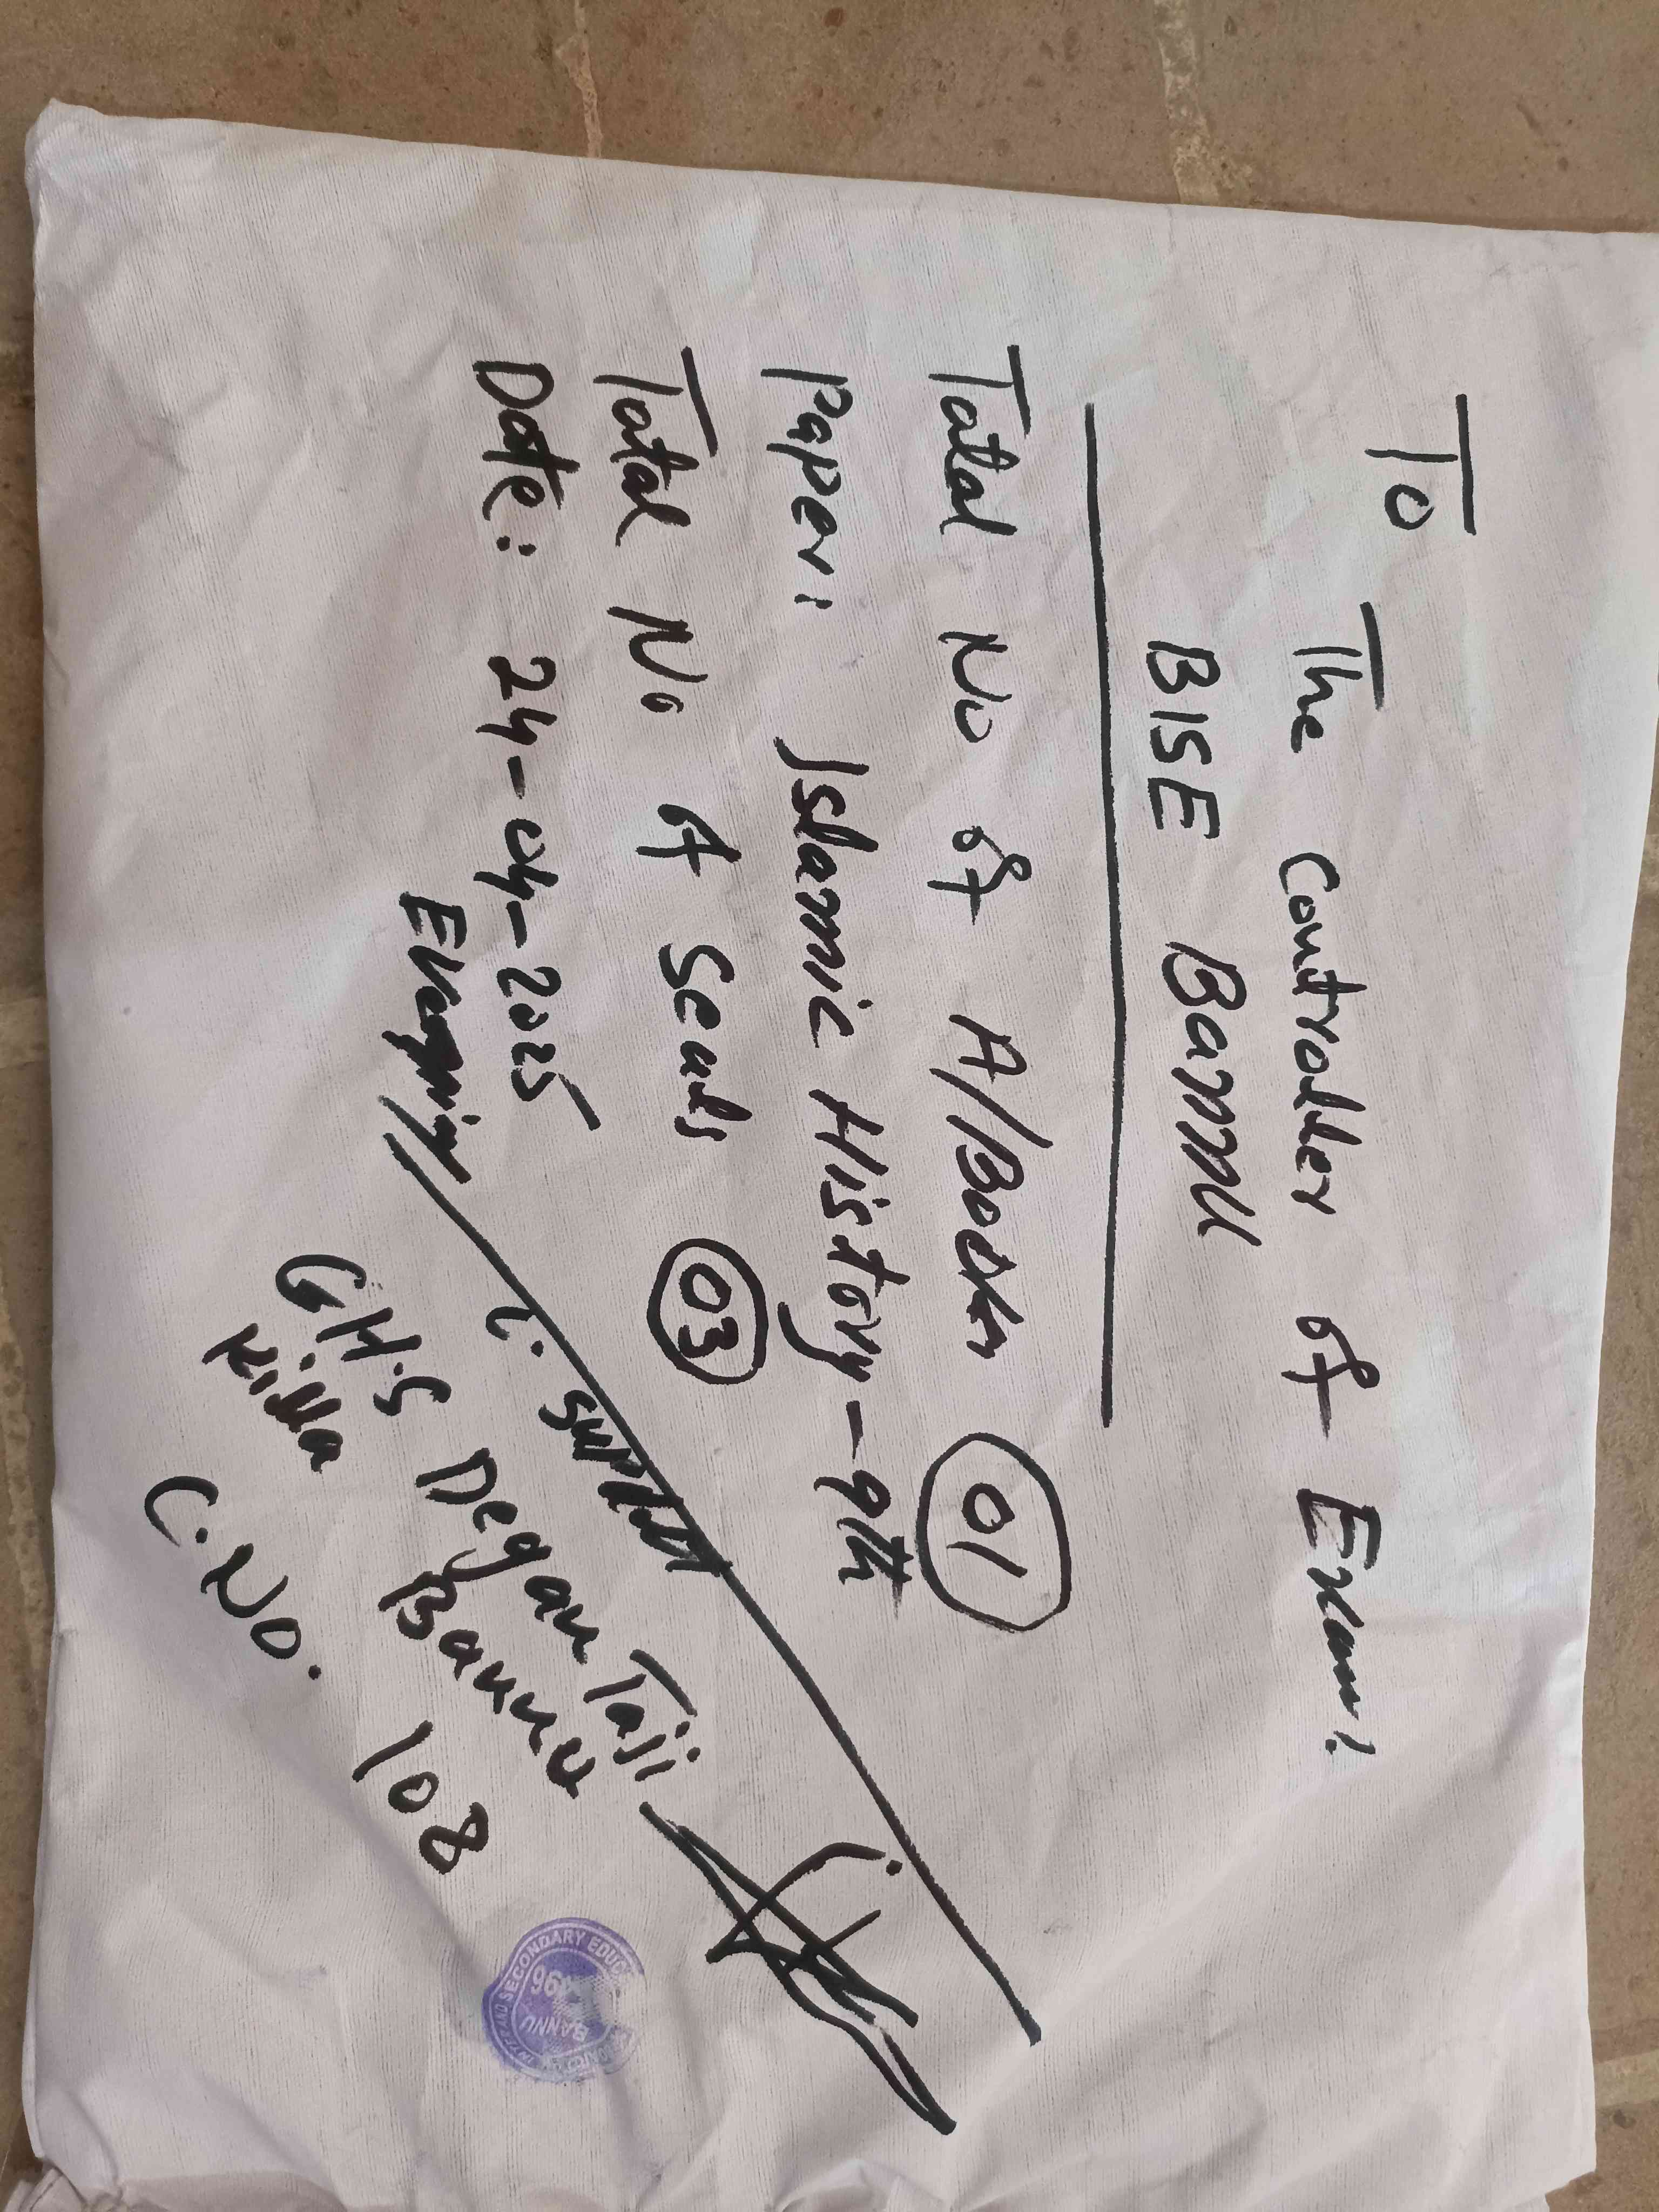 To
The Controller of Exam:
BISE Bannu
Total No of A/Books 01
Paper: Islamic History-9th
Total No of Seals 03
Date: 24-04-2025
Evening
C. Supdtt
G.H.S Degan Taji
Killa Bannu
C.No. 108
SECONDARY EDUC
BANNU